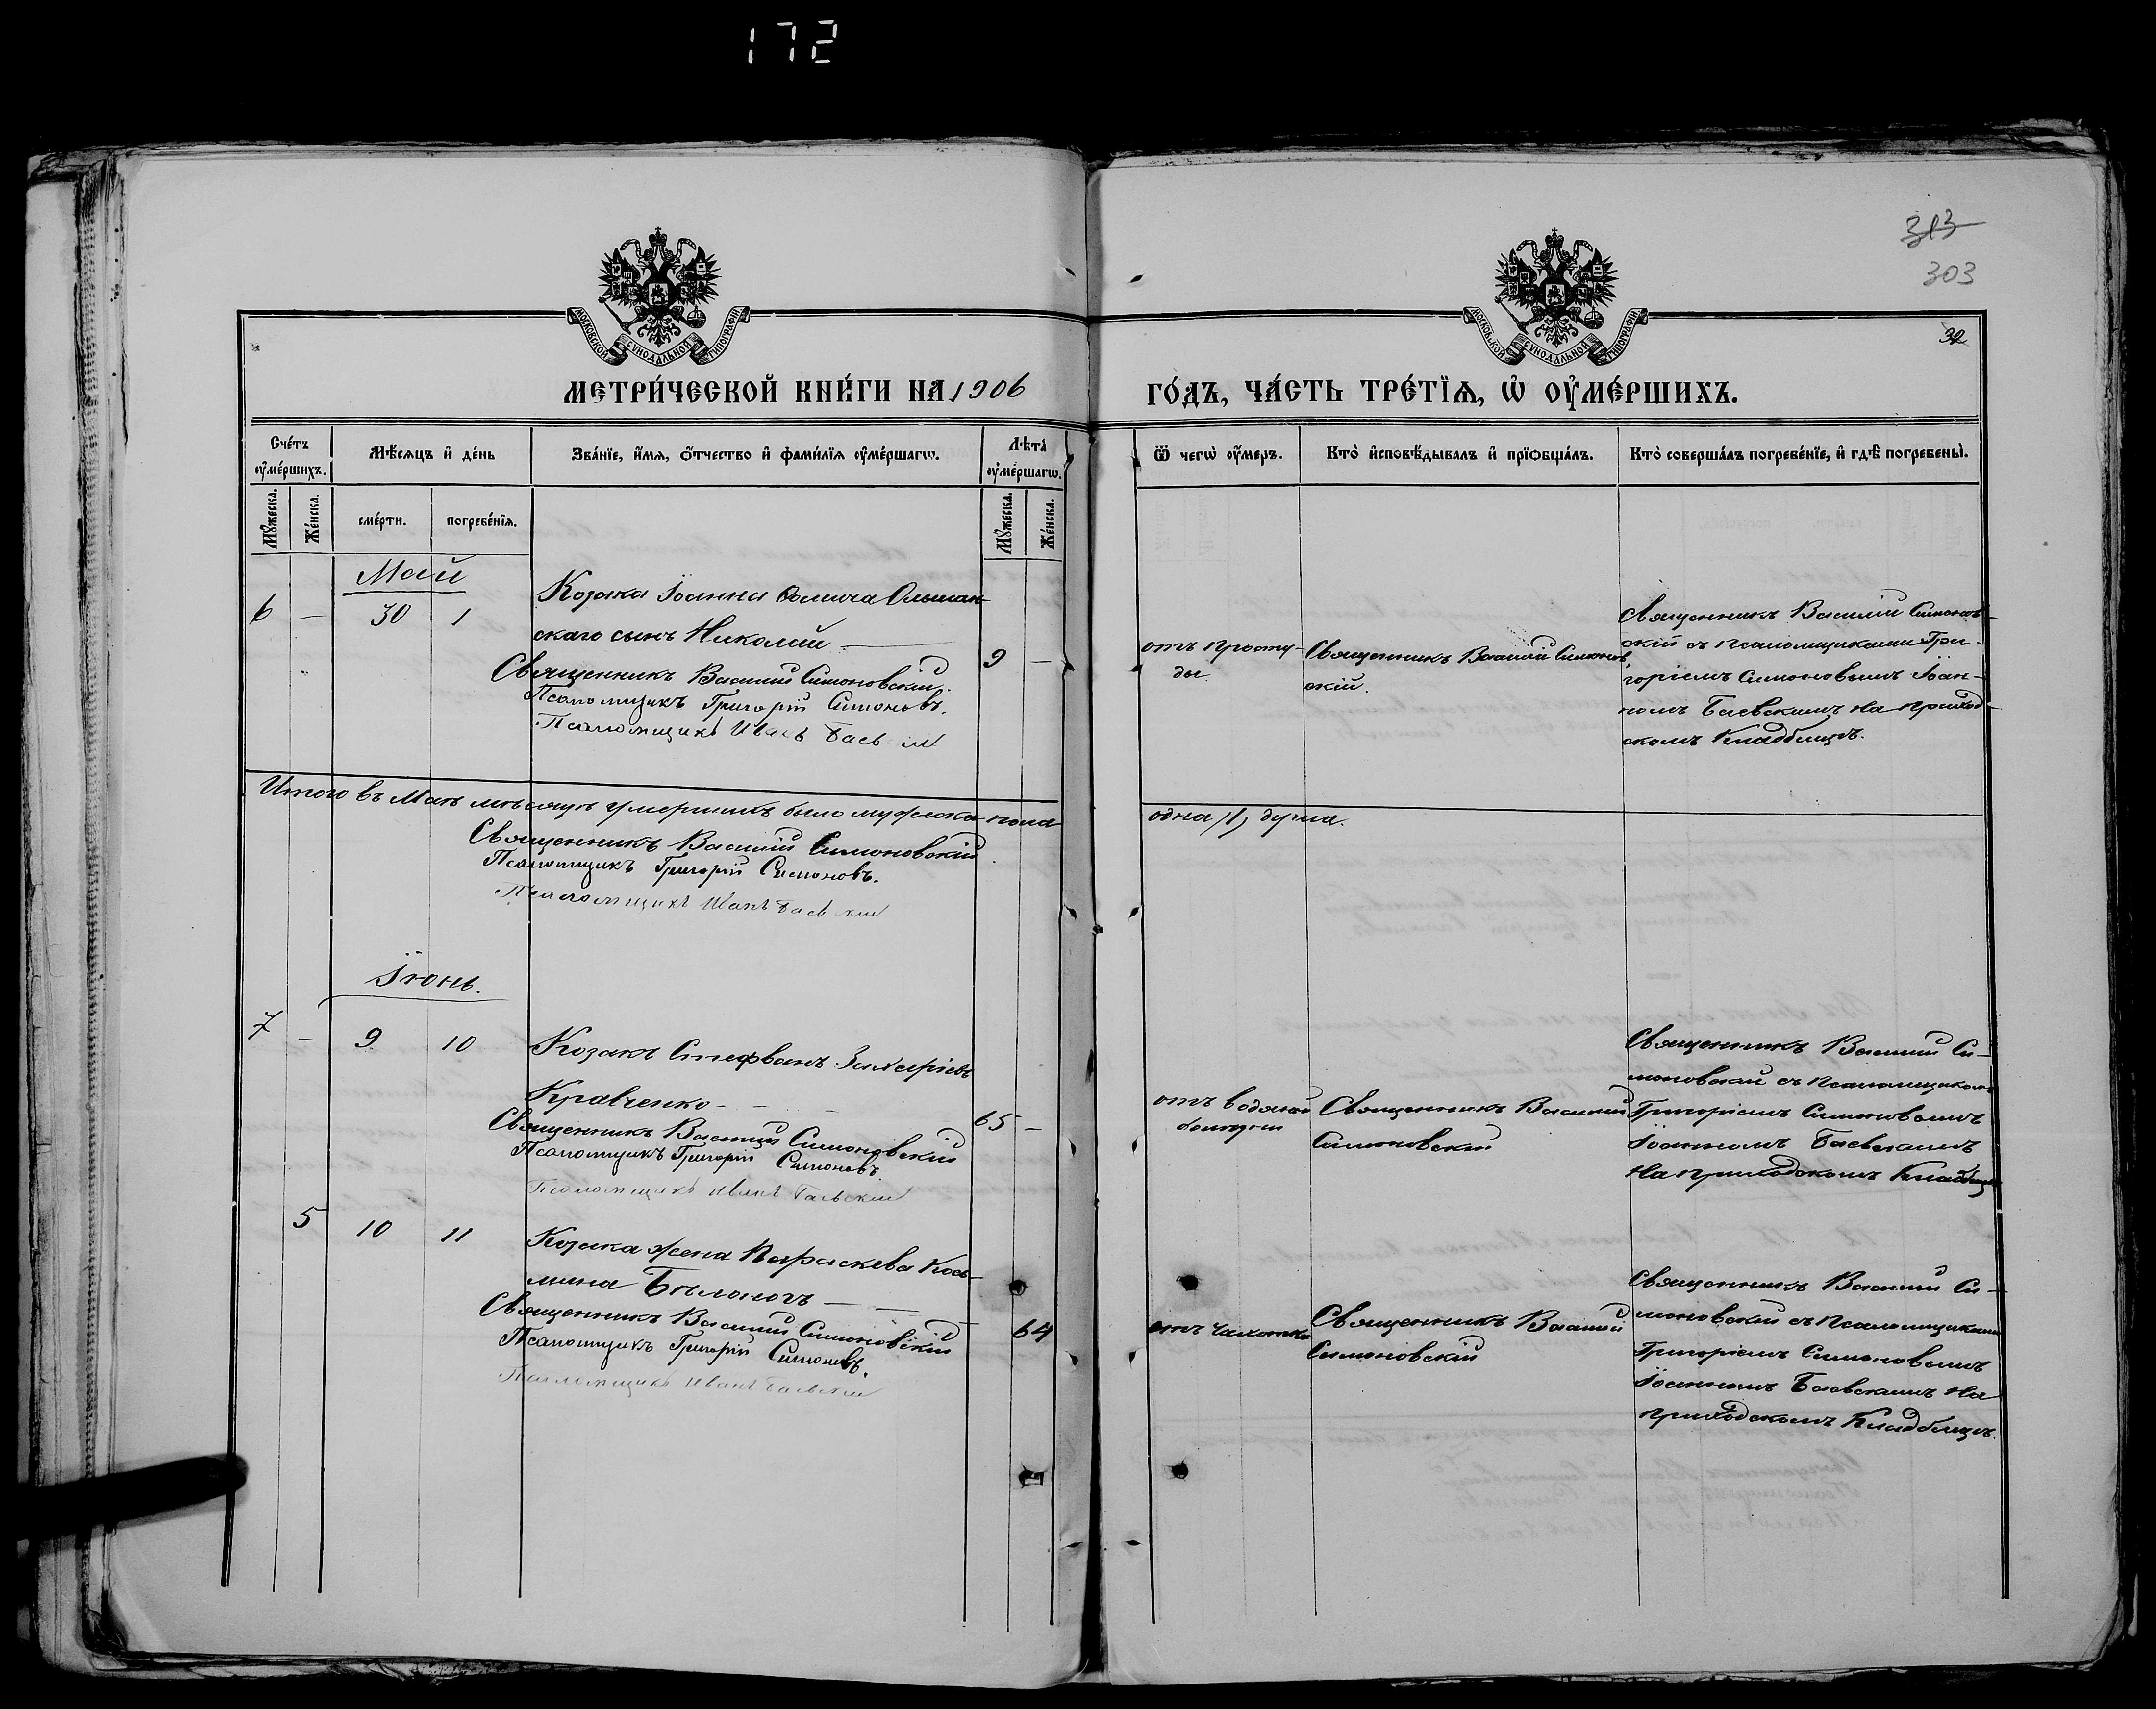 172
313
303
32
МОСКОВСКОЙ СѴНОДАЛЬНОЙ ТИПОГРАФІИ
МОСКОВСКОЙ СѴНОДАЛЬНОЙ ТИПОГРАФІИ
МЕТРИ́ЧЕСКОЙ КНИ́ГИ НА 1906
ГО́ДЪ, ЧА́СТЬ ТРЕ́ТЇѦ, Ѽ ОУ҆МЕ́РШИХЪ.
Сче́тъ оу҆ме́ршихъ.
Мѣ́сѧцъ и҆ де́нь
Зва́нїе, и҆́мѧ, ѻ҆́тчество и҆ фами́лїѧ оу҆ме́ршагѡ.
Лѣта̀ оу҆ме́ршагѡ.
Ѿ чегѡ̀ оу҆́меръ.
Кто̀ и҆сповѣ́дывалъ и҆ прїѡбща́лъ.
Кто̀ соверша́лъ погребе́нїе, и҆ гдѣ̀ погребены̀.
Мꙋ́жеска.
Же́нска.
сме́рти.
погребе́нїѧ.
Мꙋ́жеска.
Же́нска.
Май
6 — 30 1
Козака Іоанна Ольшан-
скаго сынъ Николай —
9 —
Священникъ Василій Симоновскій.
Псаломщикъ Григорій Симоновъ.
Псаломщикъ
отъ просту-
ды.
Священникъ Василій Симонов-
скій.
Священникъ Василій Симонов-
скій съ псаломщиками Гри-
горіемъ Симоновымъ Іоан-
номъ Баевскимъ на приход-
скомъ кладбищѣ.
Итого въ Маѣ мѣсяцѣ умершихъ было мужска пола
одна /1/ душа.
Священникъ Василій Симоновскій.
Псаломщикъ Григорій Симоновъ.
Псаломщикъ Иванъ Баевскій
Іюнь.
7 — 9 10
Козакъ Стефанъ Захаріевъ
Кравченко —
65 —
Священникъ Василій Симоновскій
Псаломщикъ Григорій Симоновъ.
Псаломщикъ Иванъ Баевскій
отъ водяной
болезни
Священникъ Василій
Симоновскій
Священникъ Василій Си-
моновскій съ псаломщиками
Григоріемъ Симоновымъ
Іоанномъ Баевскимъ
на приходскомъ кладбищѣ
5 10 11
Козака жена Параскева Кось-
мина Бѣлоногъ —
64
Священникъ Василій Симоновскій
Псаломщикъ Григорій Симоновъ.
Псаломщикъ Иванъ Баевскій
отъ чахотки
Священникъ Василій
Симоновскій
Священникъ Василій Си-
моновскій съ псаломщиками
Григоріемъ Симоновымъ
Іоанномъ Баевскимъ на
приходскомъ кладбищѣ.